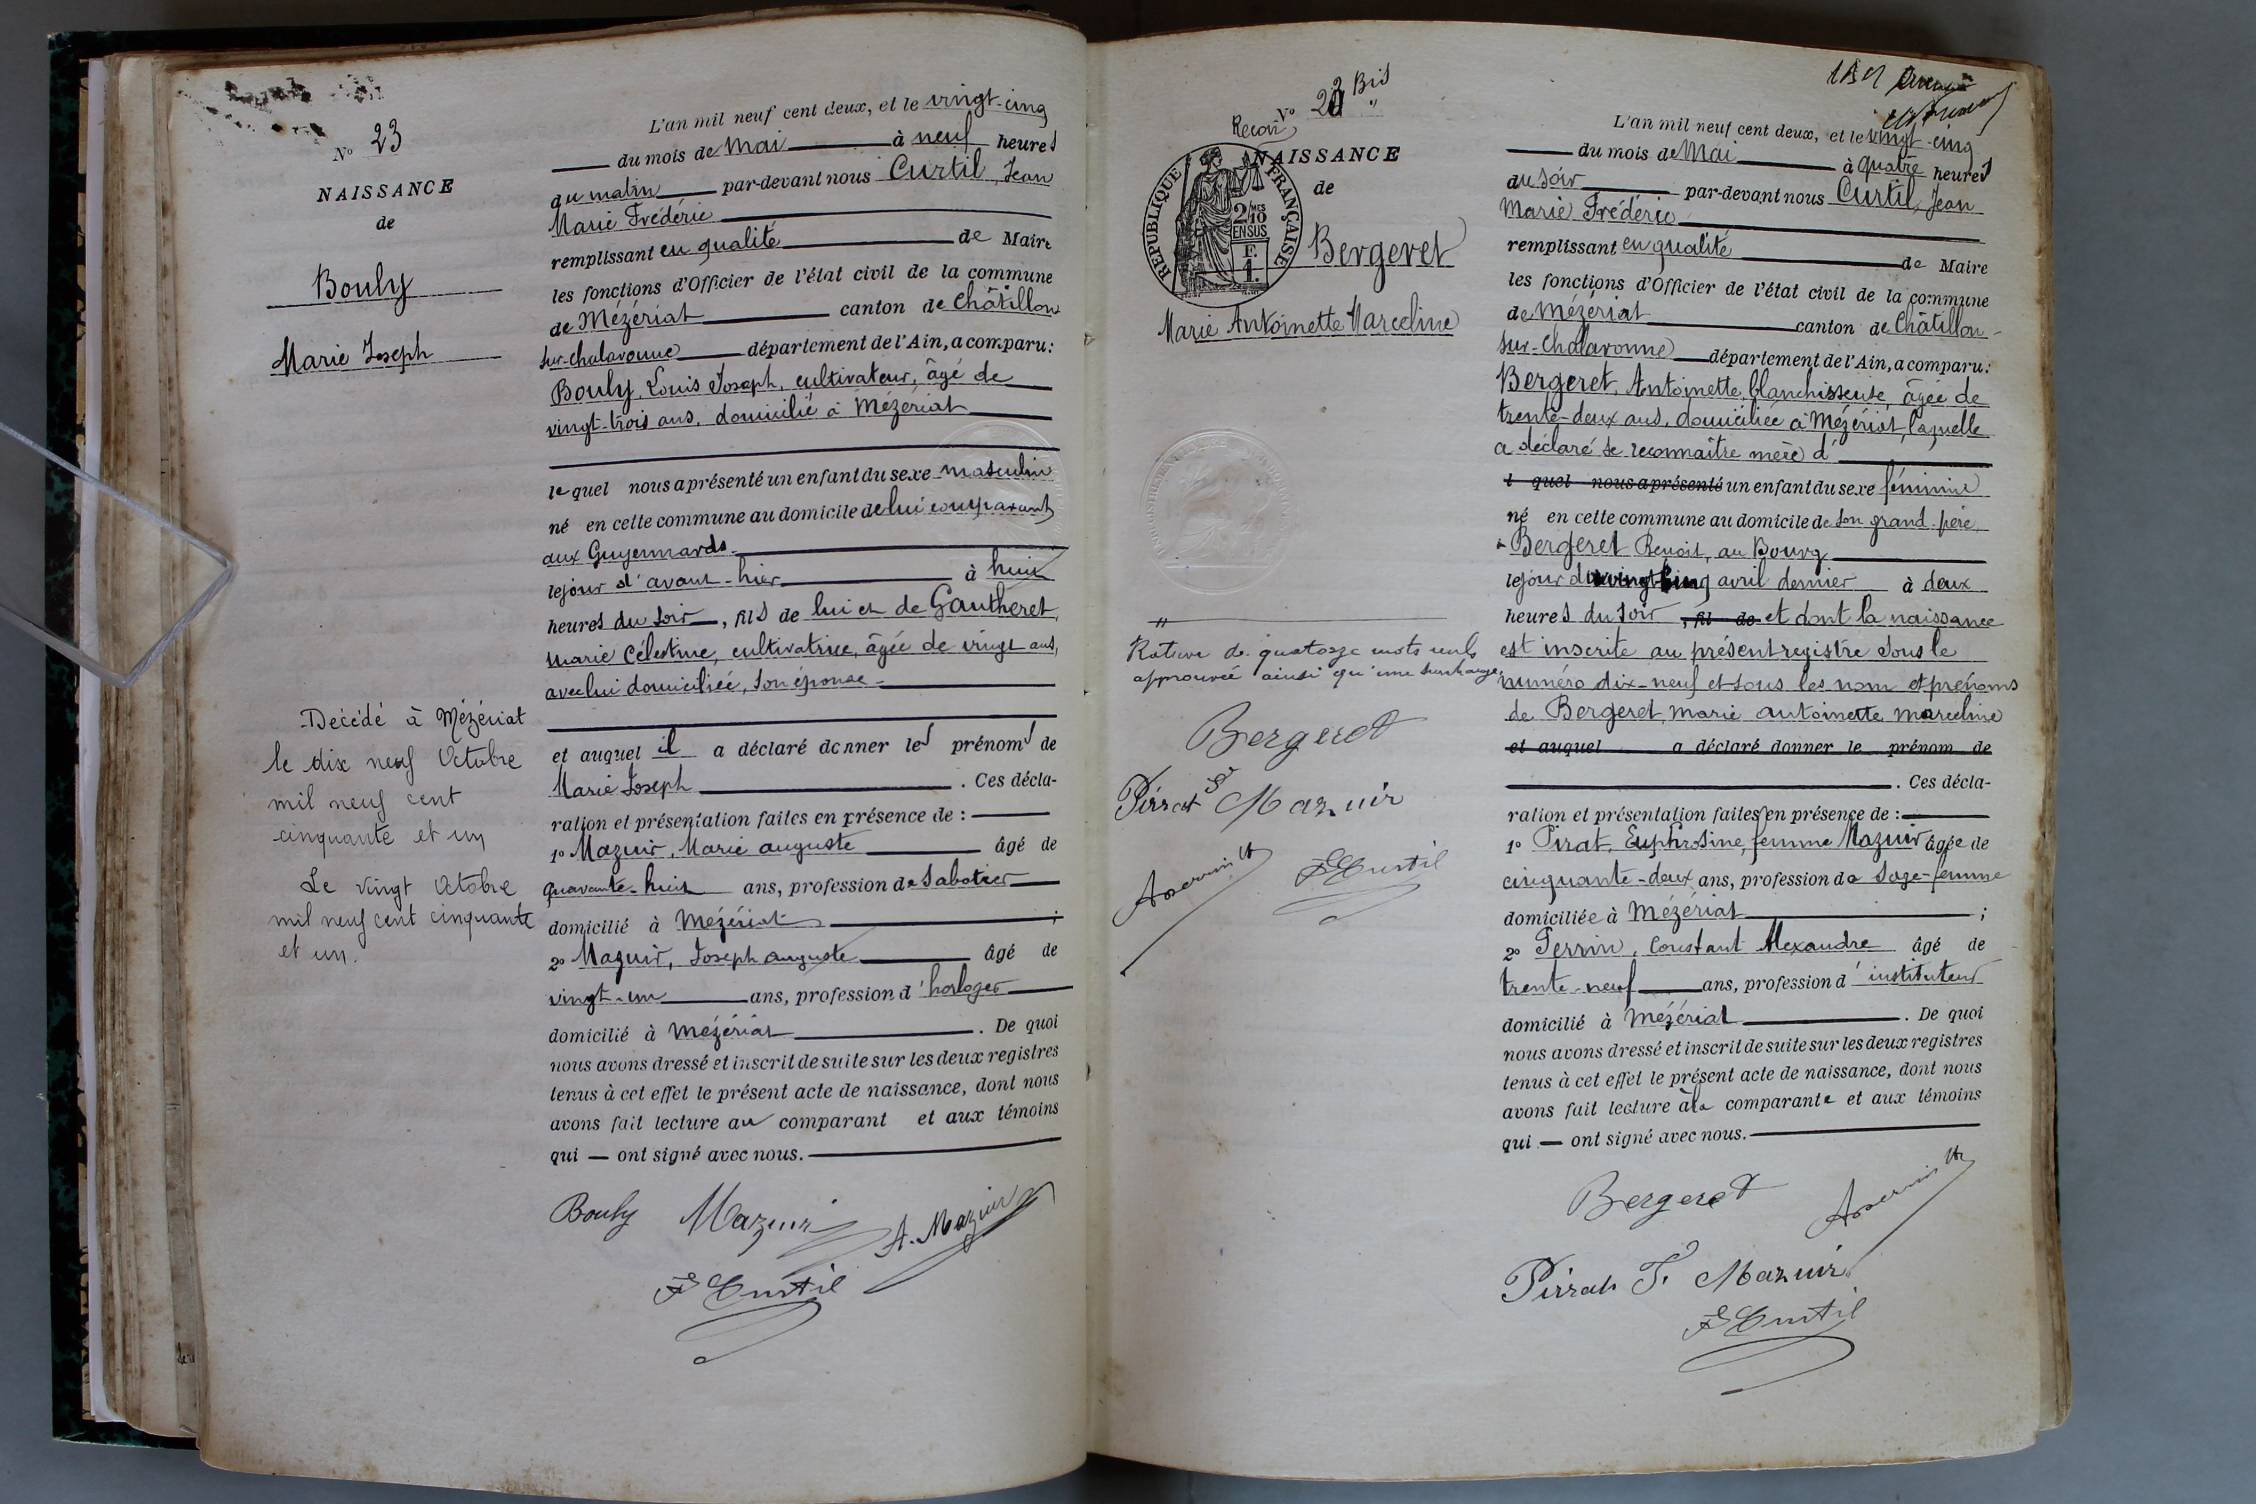 N° 23
NAISSANCE
de
Bouly
Marie Joseph
Décédé à Mézériat
le dix neuf Octobre
mil neuf cent
cinquante et un
Le vingt Octobre
mil neuf cent cinquante
et un.
L'an mil neuf cent deux, et le vingt-cinq
du mois de Mai à neuf heures
du matin par-devant nous Curtil, Jean
Marie Frédéric
remplissant en qualité de Maire
les fonctions d'Officier de l'état civil de la commune
de Mézériat canton de Châtillon
sur-chalaronne département de l'Ain, a comparu:
Bouly, Louis Joseph, cultivateur, âgé de
vingt-trois ans, domicilié à Mézériat
lequel nous a présenté un enfant du sexe masculin
né en cette commune au domicile de lui comparant
aux Guyennards
le jour d'avant-hier à huit
heures du soir, fils de lui et de Gautheret,
Marie Célestine, cultivatrice, âgée de vingt ans,
avec lui domiciliée, son épouse
et auquel il a déclaré donner les prénoms de
Marie Joseph. Ces décla-
ration et présentation faites en présence de :
1° Mazuir, Marie auguste âgé de
quarante-huit ans, profession de Sabotier
domicilié à Mézériat ;
2° Mazuir, Joseph auguste âgé de
vingt-un ans, profession d'horloger
domicilié à Mézériat. De quoi
nous avons dressé et inscrit de suite sur les deux registres
tenus à cet effet le présent acte de naissance, dont nous
avons fait lecture au comparant et aux témoins
qui — ont signé avec nous.
Bouly Mazuir A. Mazuir
F Curtil
N° 23 Bis
Recon
NAISSANCE
de
RÉPUBLIQUE FRANÇAISE
2/10 MES
EN SUS
F.
1.
Bergeret
Marie Antoinette Marceline
Rature de quatorze mots nuls
approuvée ainsi qu'une surcharge
Bergeret
Pirrat Mazuir
F Curtil
L'an mil neuf cent deux, et le vingt-cinq
du mois de Mai à quatre heures
du soir par-devant nous Curtil, Jean
Marie Frédéric
remplissant en qualité de Maire
les fonctions d'Officier de l'état civil de la commune
de Mézériat canton de Châtillon-
sur-Chalaronne département de l'Ain, a comparu:
Bergeret, Antoinette, blanchisseuse, âgée de
trente-deux ans, domiciliée à Mézériat, laquelle
a déclaré se reconnaître mère d'
l quel nous a présenté un enfant du sexe féminin
né en cette commune au domicile de son grand-père,
Bergeret Benoit, au Bourg
le jour du vingt cinq avril dernier à deux
heures du soir, fil de et dont la naissance
est inscrite au présent registre sous le
numéro dix-neuf et sous les nom et prénoms
de Bergeret, marie antoinette marceline
et auquel a déclaré donner le prénom de
. Ces décla-
ration et présentation faites en présence de :
1° Pirat, Euphrosine, femme Mazuir âgée de
cinquante-deux ans, profession de Sage-femme
domiciliée à Mézériat ;
2° Perrin, Constant Alexandre âgé de
trente-neuf ans, profession d'instituteur
domicilié à Mézériat. De quoi
nous avons dressé et inscrit de suite sur les deux registres
tenus à cet effet le présent acte de naissance, dont nous
avons fait lecture à la comparante et aux témoins
qui — ont signé avec nous.
Bergeret
Pirrat F. Mazuir
F Curtil